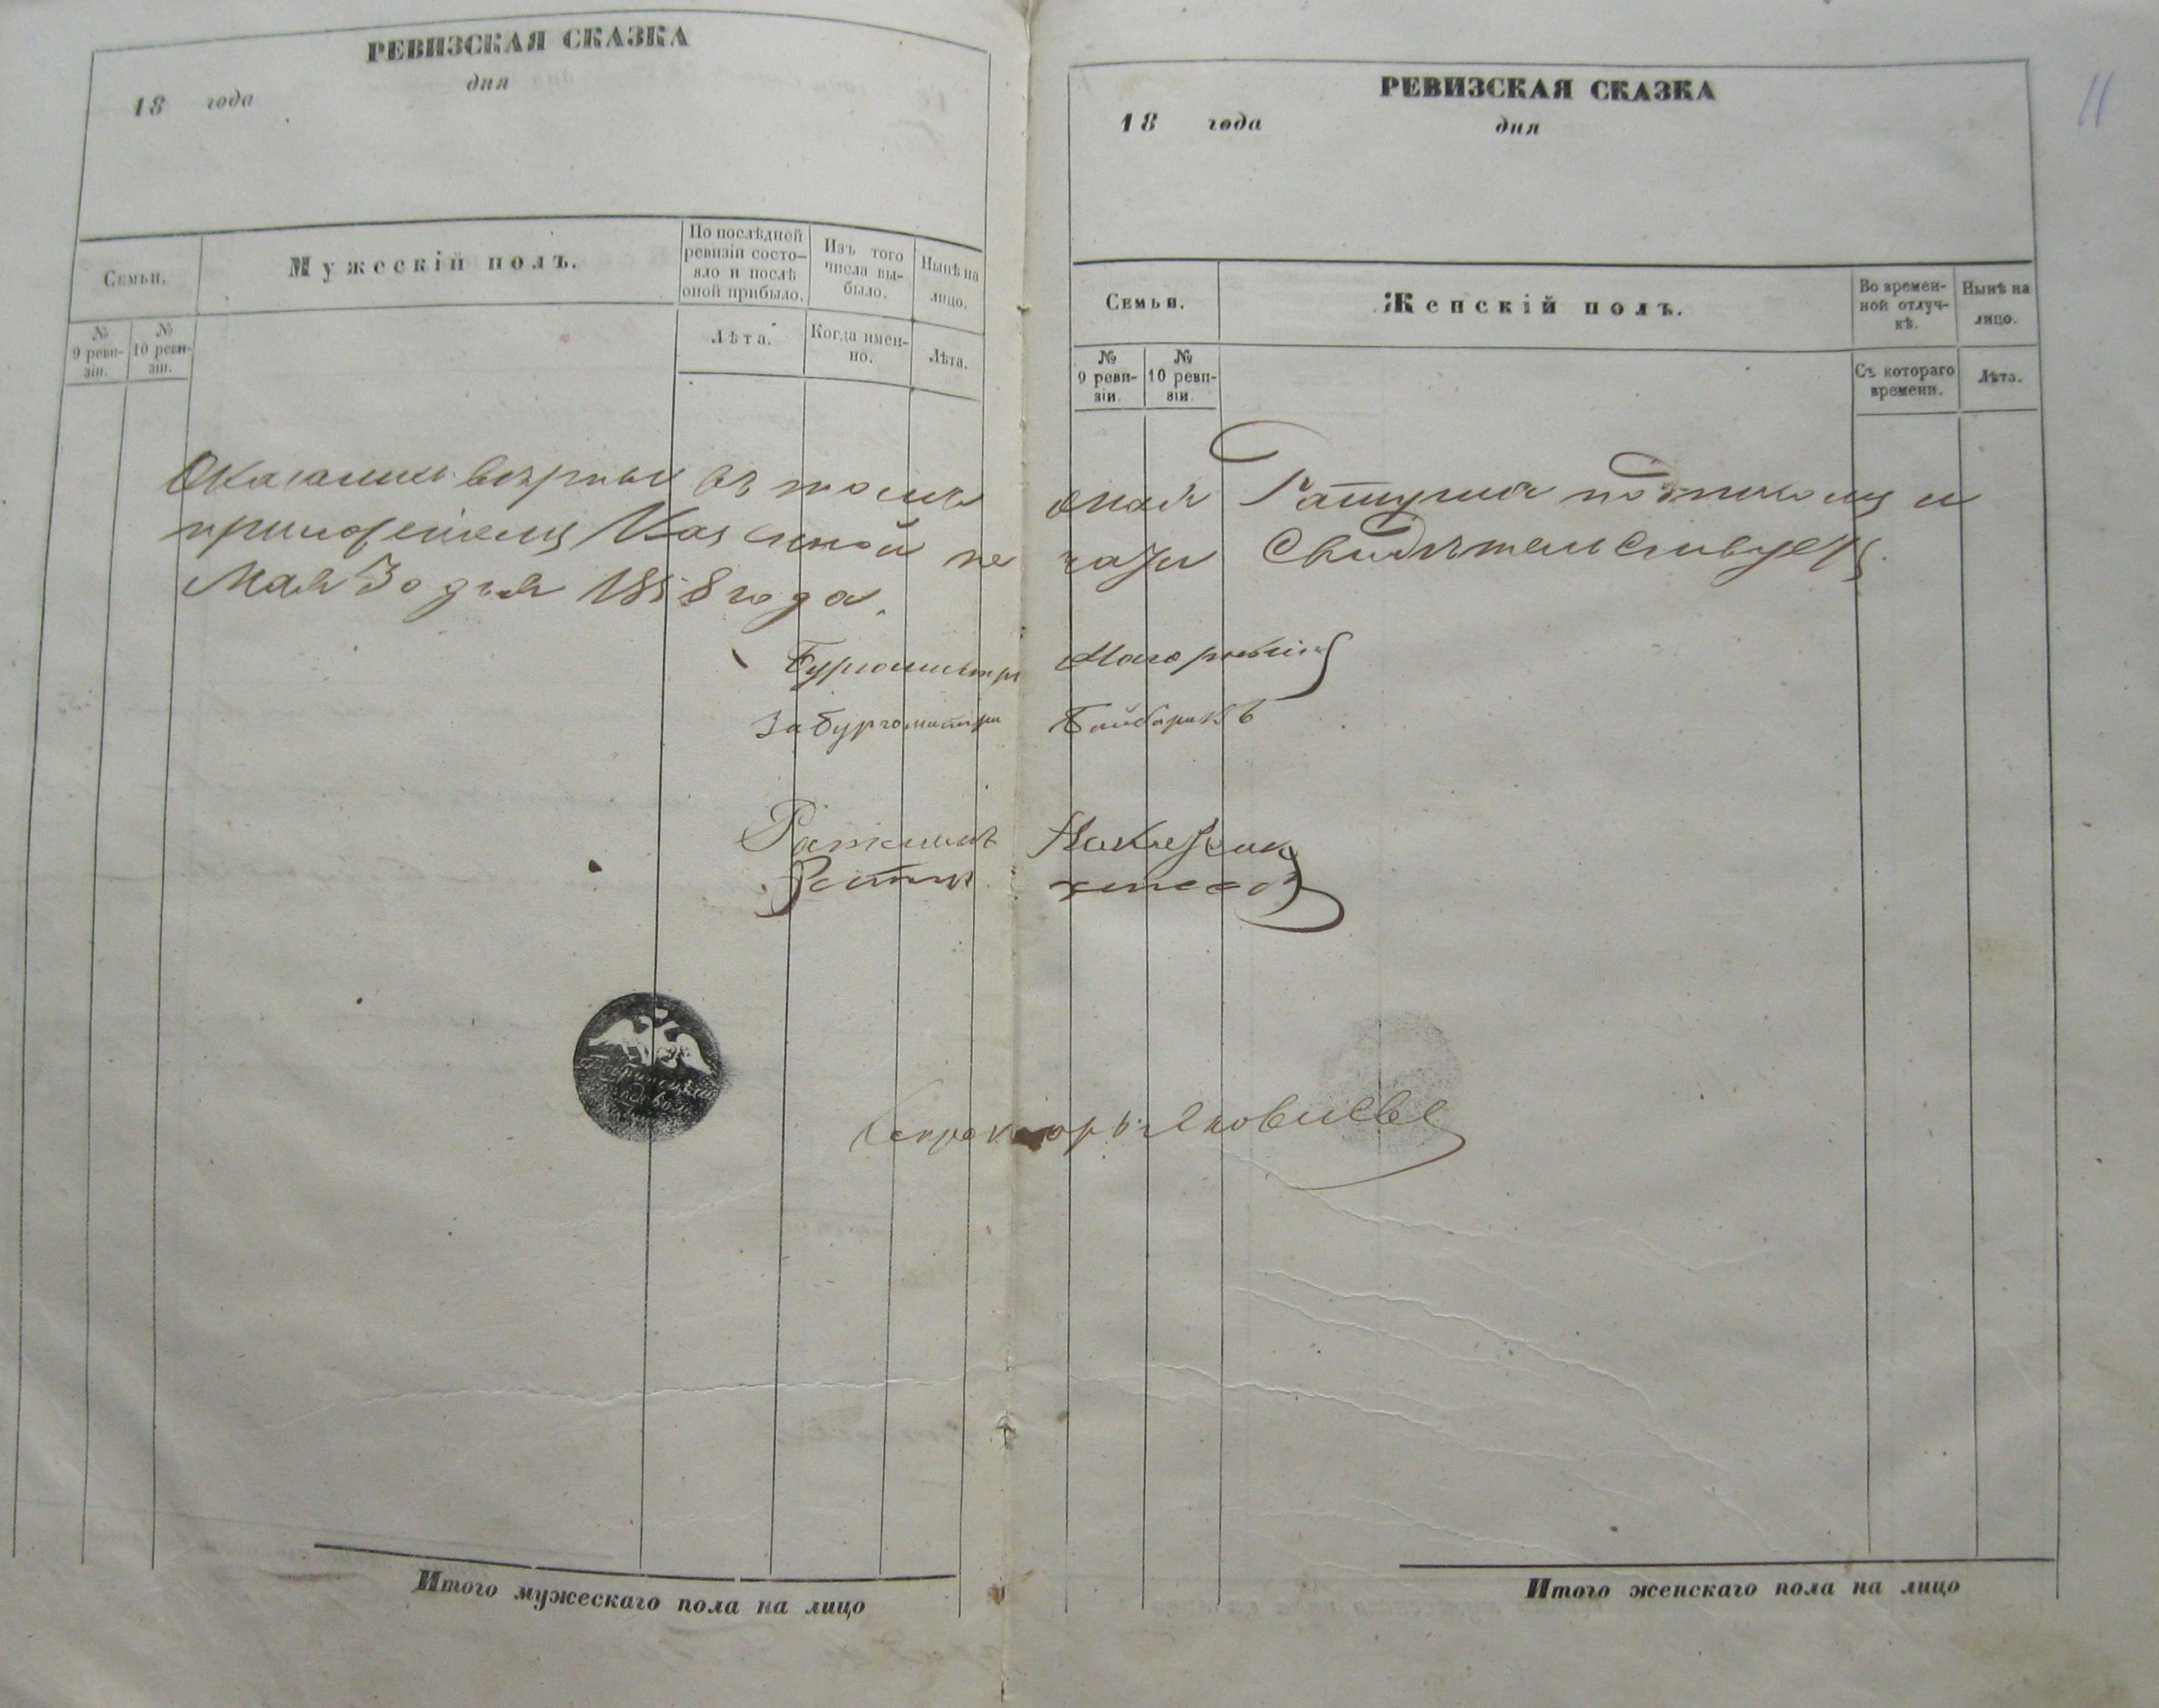 РЕВИЗСКАЯ СКАЗКА
18 года дня
Семьи.
Мужескій полъ.
По послѣдней ревизіи состояло и послѣ оной прибыло.
Изъ того числа выбыло.
Нынѣ на лицо.
№ 9 ревизіи.
№ 10 ревизіи.
Лѣта.
Когда именно.
Лѣта.
РЕВИЗСКАЯ СКАЗКА
11
18 года дня
Семьи.
Женскій полъ.
Во временной отлучкѣ.
Нынѣ на лицо.
№ 9 ревизіи.
№ 10 ревизіи.
Съ котораго времени.
Лѣта.
Оказались верны въ томъ оная Ратуша подписомъ и
приложеніемъ Казенной печати Свидѣтельствуетъ.
Мая 30 дня 1858 года.
Бургомистръ
За бургомистра
Ратманъ
Секретарь Яковлевъ
Итого мужескаго пола на лицо
Итого женскаго пола на лицо